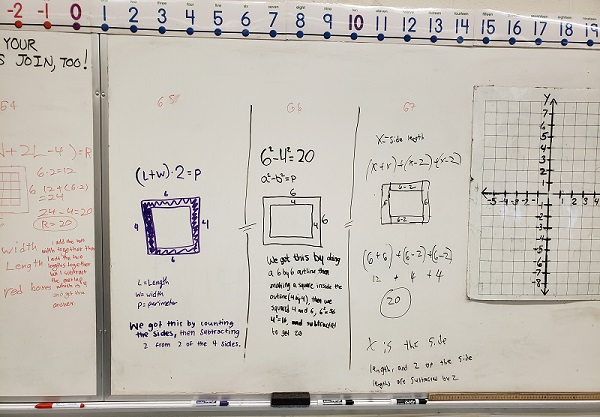 -2 -1 0 1 2 3 4 5 6 7 8 9 10 11 12 13 14 15 16 17 18 19
YOUR
JOIN, TOO!
54
+2L-4)=R
6·2=12
12+(6·2)
=24
24-4=20
R=20
width
Length
red boxes
I add the two
width together then
I add the two
lengths together
but I subtract
the overlap
answer.
(L+W)·2=P
6
4
4
6
L=Length
W=width
P=perimeter
We got this by counting
the sides, then subtracting
2 from 2 of the 4 sides.
G6
6²-4²=20
a²-b²=p
6
4
4
6
We got this by doing
a 6 by 6 outline then
making a square inside the
outline (4 by 4), then we
squared 4 and 6, 6²=36
4²=16, and subtracted
to get 20
G7
X=side length
(x+x)+(x-2)+(x-2)
6-2
6
6
6-2
(6+6)+(6-2)+(6-2)
12 + 4 + 4
20
X is the side
length, and 2 of the side
lengths are subtracted by 2
Y
7
6
5
4
3
2
1
-5 -4 -3 -2 -1 1 2 3 4 5
-1
-2
-3
-4
-5
-6
-7
-8